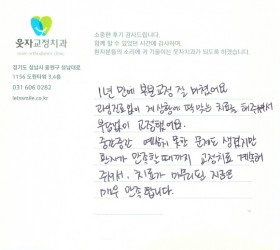 웃자교정치과
소중한 후기 감사드립니다.
함께 할 수 있었던 시간에 감사하며,
환자분들의 소리에 귀 기울이는 웃자교정치과가 되도록 하겠습니다.
경기도 성남시 중원구 성남대로
1156 도원타워 3,4층
031 606 0282
letsmile.co.kr
1년 만에 부분교정 잘 마쳤어요
과잉진료없이 제 상황에 딱맞는 치료를 해주셔서
부담없이 교정했어요.
중간중간 예상치 못한 문제도 생겼지만
환자가 만족할때까지 교정치료 계속해
주셔서, 치료가 마무리된 지금은
매우 만족 합니다.